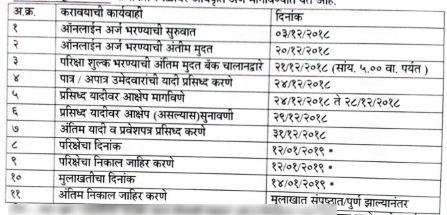 अ.क्र. करावयाची कार्यवाही दिनांक
१ ऑनलाईन अर्ज भरण्याची सुरुवात ०३/१२/२०१८
२ ऑनलाईन अर्ज भरण्याची अंतीम मुदत २०/१२/२०१८
३ परिक्षा शुल्क भरण्याची अंतिम मुदत बँक चालानद्वारे २१/१२/२०१८ (सांय. ५.०० वा. पर्यंत )
४ पात्र / अपात्र उमेदवारांची यादी प्रसिध्द करणे २४/१२/२०१८
५ प्रसिध्द यादीवर आक्षेप मागविणे २४/१२/२०१८ ते २८/१२/२०१८
६ प्रसिध्द यादीवर आक्षेप (असल्यास)सुनावणी २९/१२/२०१८
७ अंतिम यादी व प्रवेशपत्र प्रसिध्द करणे ३१/१२/२०१८
८ परिक्षेचा दिनांक १२/०१/२०१९ *
९ परिक्षेचा निकाल जाहिर करणे १२/०१/२०१९ *
१० मुलाखतीचा दिनांक १४/०१/२०१९ *
११ अंतिम निकाल जाहिर करणे मुलाखात संपष्टात/पुर्ण झाल्यानंतर